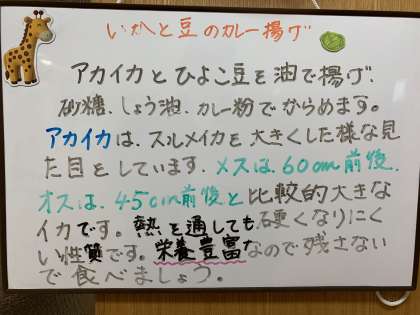 いかと豆のカレー揚げ
アカイカとひよこ豆を油で揚げ、
砂糖、しょう油、カレー粉でからめます。
アカイカは、スルメイカを大きくした様な見
た目をしています。メスは、60cm前後、
オスは、45cm前後と比較的大きな
イカです。熱を通しても硬くなりにく
い性質です。栄養豊富なので残さない
で食べましょう。